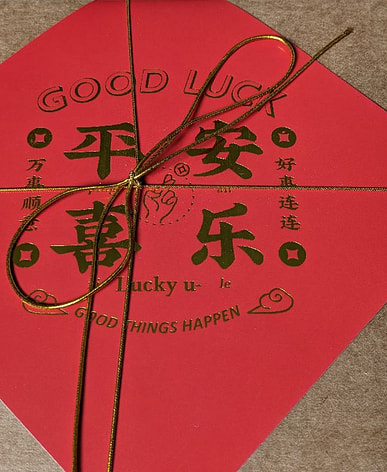 GOOD LUCK
平安
喜乐
万事顺意
好事连连
Lucky u-
GOOD THINGS HAPPEN